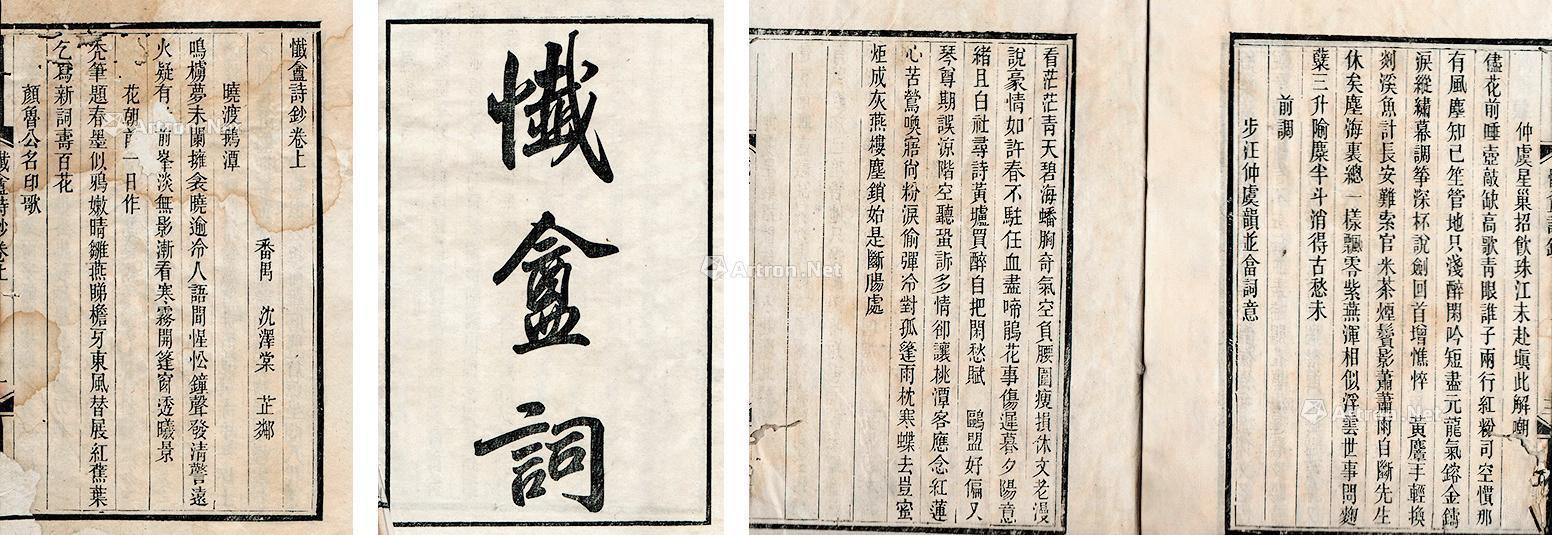 懺盦詩鈔卷上
番禺 沈澤棠 芷鄰
曉渡鵝潭
鳴榜夢未闌擁衾曉逾冷人語閒惺忪鐘聲發清警遠
火疑有 前峯淡無影漸看寒霧開篷窗透曦景
花朝前一日作
禿筆題春墨似鴉嫩晴雛燕睇檐牙東風替展紅蕉葉
乞寫新詞壽百花
顏魯公名印歌
懺盦詩鈔卷上
一
懺盦詞
仲虞星巢招飲珠江未赴塡此解嘲
儘花前唾壺敲缺高歌青眼誰子兩行紅粉司空慣那
有風塵知己笙管地只淺醉閑吟短盡元龍氣鎔金鑄
淚縱繡幕調箏深杯說劍回首增憔悴 黃麞手輕換
剡溪魚計長安難索官米茶煙鬢影蕭蕭雨自斷先生
休矣塵海裏總一樣飄零紫燕渾相似浮雲世事問麴
糵三升隃麋半斗消得古愁未
前調
步汪仲虞韻並畣詞意
看茫茫青天碧海蟠胸奇氣空負腰圍瘦損休文老漫
說豪情如許春不駐任血盡啼鵑花事傷遲暮夕陽意
緒且白社尋詩黃壚買醉自把閑愁賦 鷗盟好偏又
琴尊期誤涼階空聽蛩訴多情卻讓桃潭客應念紅蓮
心苦鶯喚寤尙粉淚偷彈冷對孤篷雨枕寒蝶去豈蜜
炬成灰燕樓塵鎖始是斷腸處
Artron.Net
Artron.Net
Artron.Net